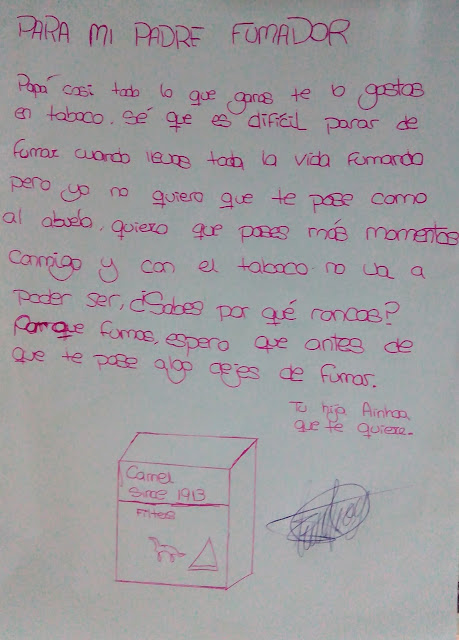 PARA MI PADRE FUMADOR
Papá casi todo lo que ganas te lo gastas
en tabaco. Sé que es difícil parar de
fumar cuando llevas toda la vida fumando
pero yo no quiero que te pase como
al abuelo, quiero que pases más momentos
conmigo y con el tabaco no va a
poder ser, ¿Sabes por qué roncas?
Porque fumas, espero que antes de
que te pase algo dejes de fumar.
Tu hija Ainhoa,
que te quiere.
Camel
Since 1913
Filtes